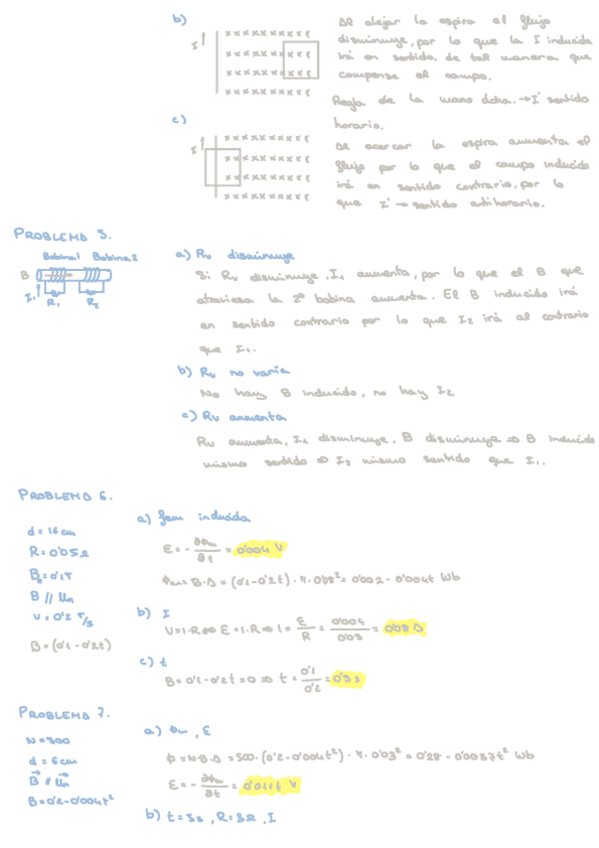 b)
I
x x x x x x x x x x
x x x x x x x x x x
x x x x x x x x x x
x x x x x x x x x x
Al alejar la espira el flujo
disminuye, por lo que la I inducida
irá en sentido, de tal manera que
compense el campo.
Regla de la mano dcha. → I' sentido
horario.
c)
I
x x x x x x x x x x
x x x x x x x x x x
x x x x x x x x x x
x x x x x x x x x x
Al acercar la espira aumenta el
flujo por lo que el campo inducido
irá en sentido contrario, por lo
que I' → sentido antihorario.
PROBLEMA 5.
Bobina 1 Bobina 2
B
I₁ R₁ R₂
a) Rv disminuye
Si Rv disminuye, I₁ aumenta, por lo que el B que
atraviesa la 2ª bobina aumenta. El B inducido irá
en sentido contrario por lo que I₂ irá al contrario
que I₁.
b) Rv no varía
No hay B inducido, no hay I₂
c) Rv aumenta
Rv aumenta, I₁ disminuye, B disminuye ⇒ B inducido
mismo sentido ⇒ I₂ mismo sentido que I₁.
PROBLEMA 6.
d = 16 cm
R = 0'05 Ω
B₀ = 0'1 T
B // Un
v = 0'2 T/s
B = (0'1 - 0'2t)
a) fem inducida
ε = - ∂Φm/∂t = 0'004 V
Φm = B·S = (0'1 - 0'2t) · π · 0'08² = 0'002 - 0'004t Wb
b) I
V = I·R ⇔ ε = I·R ⇒ I = ε/R = 0'004/0'05 = 0'08 A
c) t
B = 0'1 - 0'2t = 0 ⇒ t = 0'1/0'2 = 0'5 s
PROBLEMA 7.
N = 500
d = 6 cm
B // Un
B = 0'2 - 0'004t²
a) Φm, ε
Φ = N·B·S = 500 · (0'2 - 0'004t²) · π · 0'03² = 0'28 - 0'0057t² Wb
ε = - ∂Φm/∂t = 0'0114t V
b) t = 5s, R = 5Ω, I